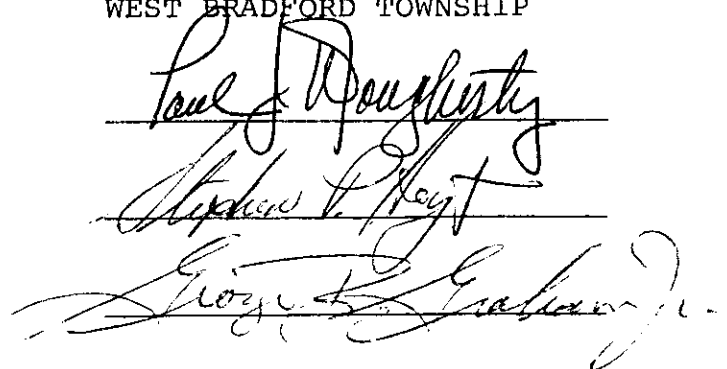 WEST BRADFORD TOWNSHIP
Paul J Dougherty
Stephen P. Hoyt
George R Graham Jr.